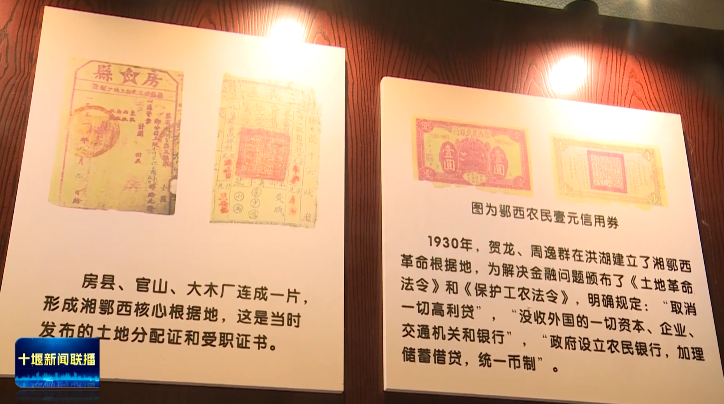 縣 房
房县、官山、大木厂连成一片，
形成湘鄂西核心根据地，这是当时
发布的土地分配证和受职证书。
壹圆 壹圆
图为鄂西农民壹元信用券
1930年，贺龙、周逸群在洪湖建立了湘鄂西
革命根据地，为解决金融问题颁布了《土地革命
法令》和《保护工农法令》，明确规定：“取消
一切高利贷”，“没收外国的一切资本、企业、
交通机关和银行”，“政府设立农民银行，加理
储蓄借贷，统一币制”。
十堰新闻联播